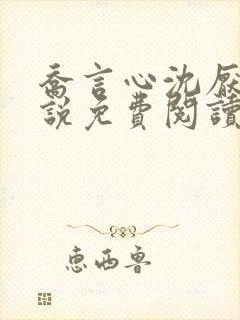 喬言心沈厭
說免費閱讀
惠西魯